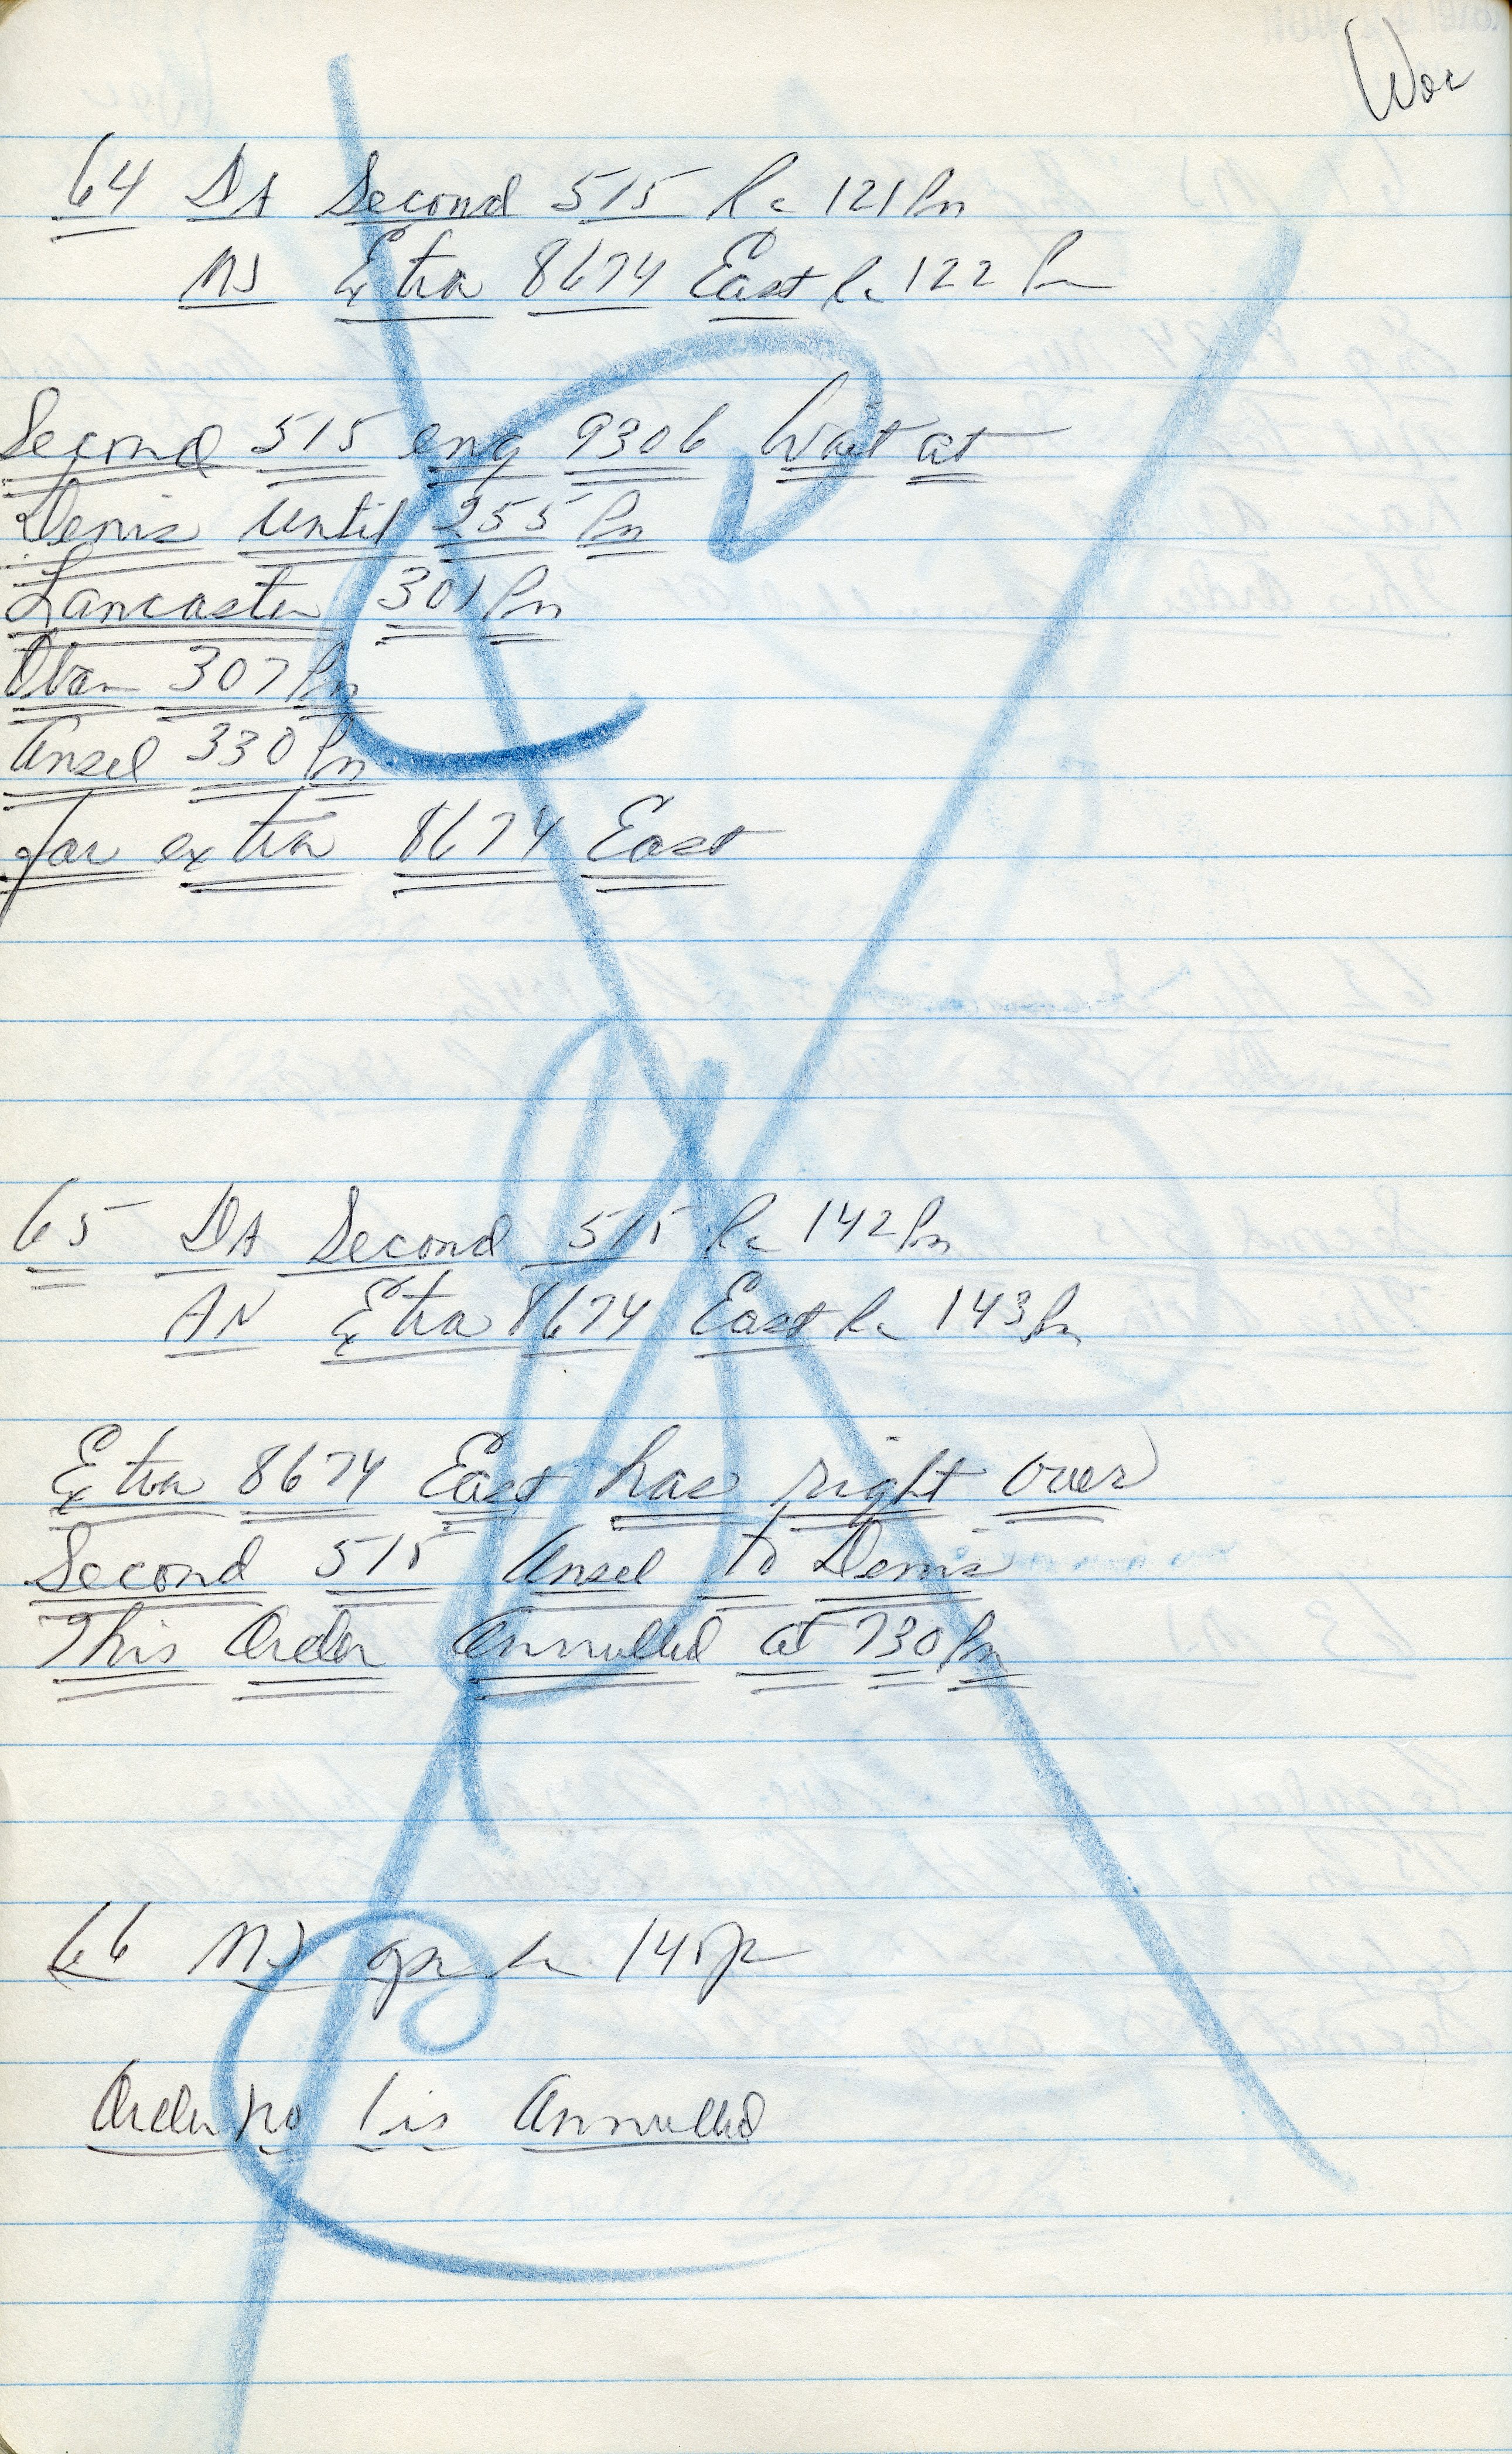 Woc
64 DA Second 515 Rc 121 Pm
MJ Extra 8674 East Rc 122 Pm
Second 515 eng 9306 Wait at
Denis until 255 Pm
Lancaster 301 Pm
Oban 307 Pm
Ansel 330 Pm
for extra 8674 East
65 DA Second 515 Rc 142 Pm
AN Extra 8674 East Rc 143 Pm
Extra 8674 East has right over
Second 515 Ansel to Denis
This Order Annulled at 730 Pm
66 MJ opr 145 p
Order no 1 is Annulled